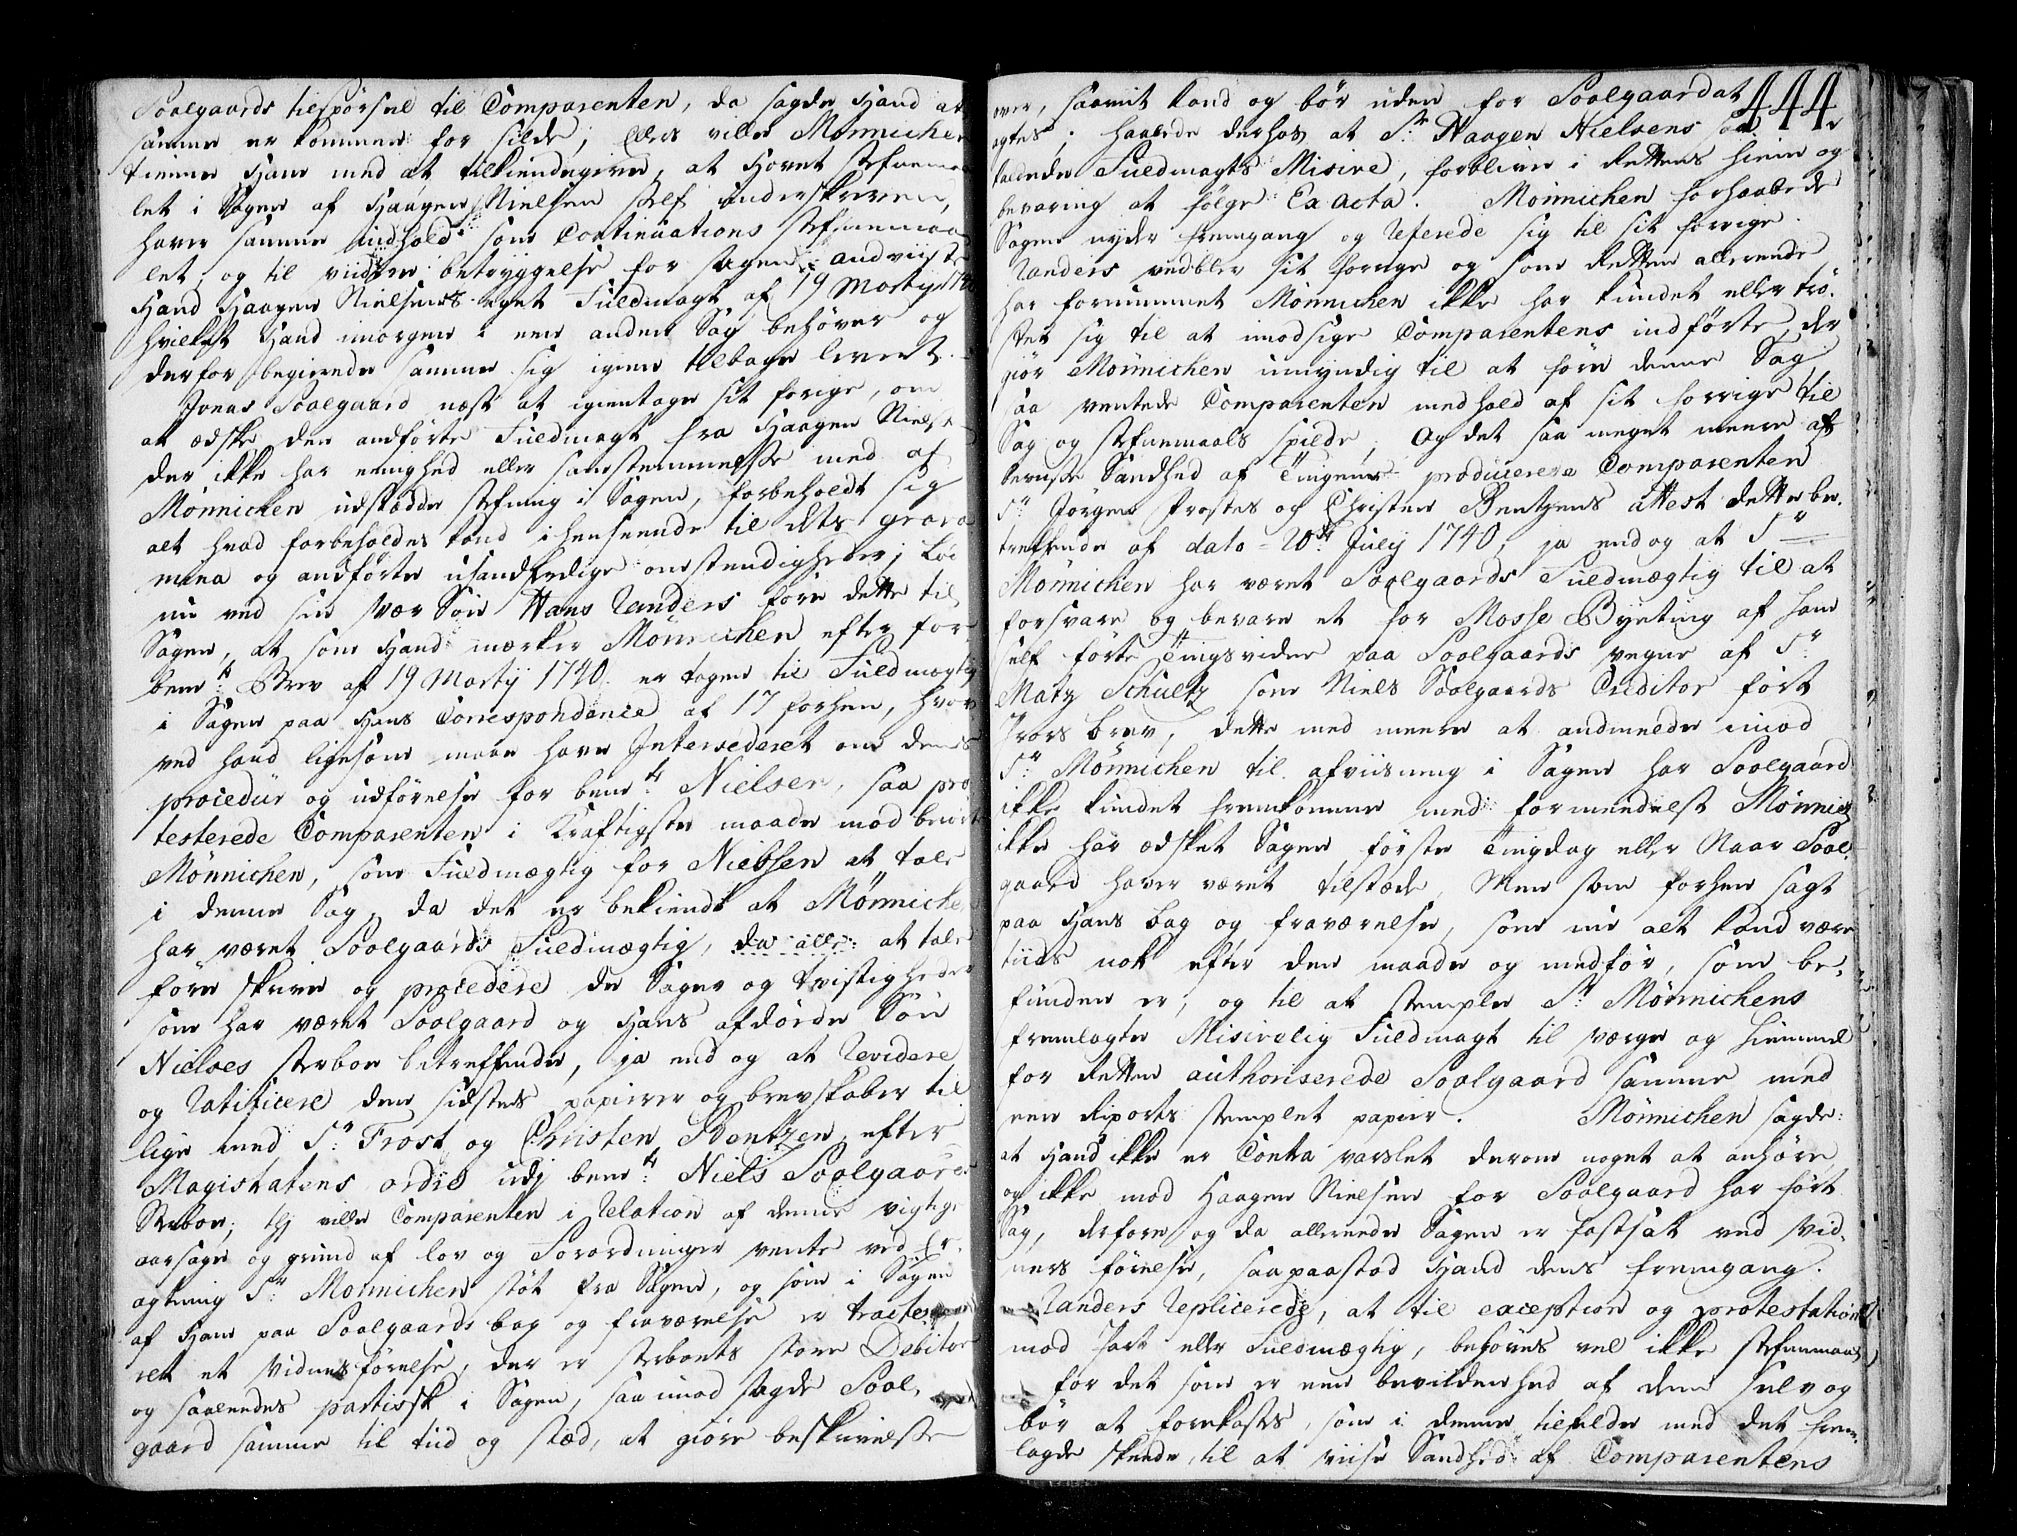 Soelgaards tilspörsel til Comparenten, da sagde Hand at
samme er kommen for silde; Ellers ville Mönnichen
tienne Ham med at tilkiendegive, at Hovet Stefnema
let i Sagen af Haagen Nielsen self underskreven,
haver samme indhold som Continuations Stefnemaa
let, og til viidere betryggelse for Sagen, andviiste
Hand Haagen Nielsens eget Fuldmagt af 19 Martij 1740
hvilket Hand imorgen i een anden Sag behöver og
derfor begierede samme sig igien tilbage levert.
Jonas Soelgaard næst at igientage sit forige, om
at ædske den andförte Fuldmagt fra Haagen Nielsen
der ikke har eenighed eller samstemmelse med af
Mönnichen udstædde Stefning i Sagen, forbeholdt sig
alt hvad forbeholdes kand i henseende til dets grava
mina og andförte usandferdige omstendigheder; Lod
nu ved sin Svær Sön Hans Randers före dette til
Sagen, at som Hand mærker Mönnichen efter for
bemte Brev af 19 Martij 1740 er tagen til Fuldmægtig
i Sagen paa Hans Correspondence af 17 forhen, hvor
ved hand ligesom maae have Intercederet om dens
procedur og udförelse for bemte Nielsen, saa pro
testerede Comparenten i Kraftigste maade mod berörte
Mönnichen, som Fuldmægtig for Nielsen at tale
i denne Sag, da det er bekiendt at Mönnichen
har været Soelgaards Fuldmægtig, da alle at tale
före skrive og procedere de Sager og tvistigheder
som har været Soelgaard og Hans afdöede Sön
Nielses Sterboe betreffende, ja end og at Revidere
og Ratificere den sidstes papiirer og brevskaber til
lige med Sr Frost og Christen Bentzen efter
Magistratens ordre udj bemte Niels Soelgaards
Sterboe; thj ville Comparenten i Relation af denne vigtige
aarsage og grund af lov og Forordninger vente ved Er
agtning Sr Mönnichen stöt fra Sagen, og som i Sagen
af Ham paa Soelgaards bag og fraværelse er tracte
ret et Vidnesförelse, der er sterboets store Debitor
og saaleedes partissk i Sagen, saa imod sagde Soel,
gaard samme til tiid og stæd, at giöre beskrivelse
444.
over, saavit kand og bör uden for Soelgaard at
agtes; haabede derhos at Sr Haagen Nielsens saa
kaldede Fuldmagts Misive, forblive i Rettens hiem og
bevaring at fölge Ex acta. Mönnichen forhaabede
Sagen nyder fremgang og refererede sig til sit forrige.
Randers vedblev sit forrige og som Retten allereede
har fornummet Mönnichen ikke har kundet eller trö,
stet sig til at imodsige Comparentens indförte, der
giör Mönnichen umyndig til at före denne Sag
saa ventede Comparenten medhold af sit forrige til
Sag og stefnemaals spilde; Og det saa meget meere af
bemte Sandhed af Tingene producerede Comparenten
Sr Jörgen Frostes og Christen Bentzens attest dette be,
treffende af dato 20de Julij 1740, ja end og at Sr
Mönnichen har været Soelgaards Fuldmægtig til at
forsvare og bevare et for Mosse Byeting af ham
self förte Tingsvidne paa Soelgaards vegne af Sr
Matz Schultz som Niels Soelgaards Creditor fört
Fors brev, dette med meere at andmelde imod
Sr Mönnichen til afviisning i Sagen har Soelgaard
ikke kundet fremkomme med formedelst Mönnich
ikke har ædsket Sagen förste Tingdag eller Naar Soel,
gaard haver været tilstæde, Men som forhen sagt
paa Hans bag og fraværelse, som nu alt kand være
tiids nok efter den maade og medför, som be,
funden er, og til at stemple Sr Mönnichens
fremlagte Misivelig Fuldmagt til værge og hiemmel
for Retten authoriserede Soelgaard samme med
een Riports stemplet papiir. Mönnichen sagde:
at Hand ikke er Contra varslet derom noget at anhöre,
og ikke mod Haagen Nielsen for Soelgaard har fört
Sag, derfore og da allereede Sagen er fastsat ved Vid,
ners förelse, saa paastod Hand dens fremgang.
Randers Replicerede, at til exception og protestation
mod Part eller Fuldmægtig, behöves vel ikke stefnemaal
for det som er een bevildenhed af dem selv og
bör at forekastes, som i denne tilfelde med det frem,
lagde skeede, til at viise Sandhed af Comparentens